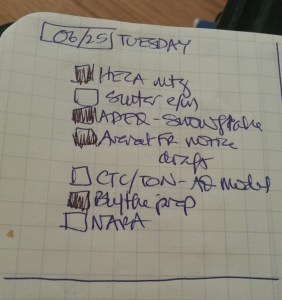 06/25 TUESDAY
HECA mtg
Sutter
APER - Snowflake
FR notice
draft
CTC/TON - AQ model
Blythe prep
NARA